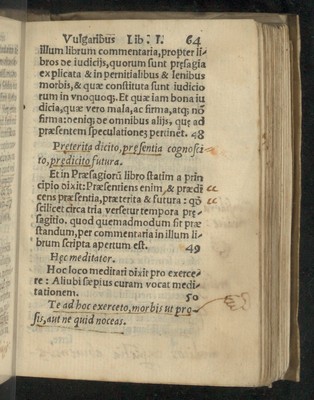 Vulgaribus Lib. I. 64
illum librum commentaria, propter li-
bros de iudicijs, quorum sunt pręsagia
explicata & in pernitialibus & lenibus
morbis, & quæ constituta sunt iudicio
rum in vnoquoq;. Et quæ iam bona iu
dicia, quæ vero mala, ac firma, atq; nõ
firma: deniq; de omnibus alijs, quę ad
præsentem speculationes pertinet. 48
Pręterita dicito, pręsentia cognosci
to, prędicito futura.
Et in Præsagiorũ libro statim a prin
cipio dixit: Præsentiens enim, & prædi
cens præsentia, præterita & futura: qð
scilicet circa tria versetur tempora prę-
sagitio. quod quemadmodum sit præ
standum, per commentaria in illum li-
brum scripta apertum est. 49
Hęc meditator.
Hoc loco meditari dixit pro exerce-
re: Aliubi sæpius curam vocat medi-
tationem. 50
Te ad hoc exerceto, morbis ut pro-
sis, aut ne quid noceas.